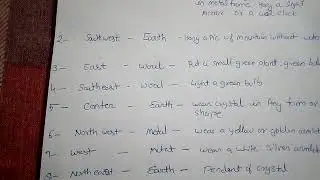 in metal frame - Hang a light
mirror or a wall clock
2- Southwest - Earth - Hang a Pic of mountain without water
3 - East - Wood - Put a small green plant, green bulb
4 - Southeast - Wood - Light a green bulb
5 - Center - Earth - wear crystal in Any form or
shape
6- North west - Metal - wear a yellow or golden armlet
7- West - Metal - wear a white silver armlet
8- North east - Earth - Pendent of crystal